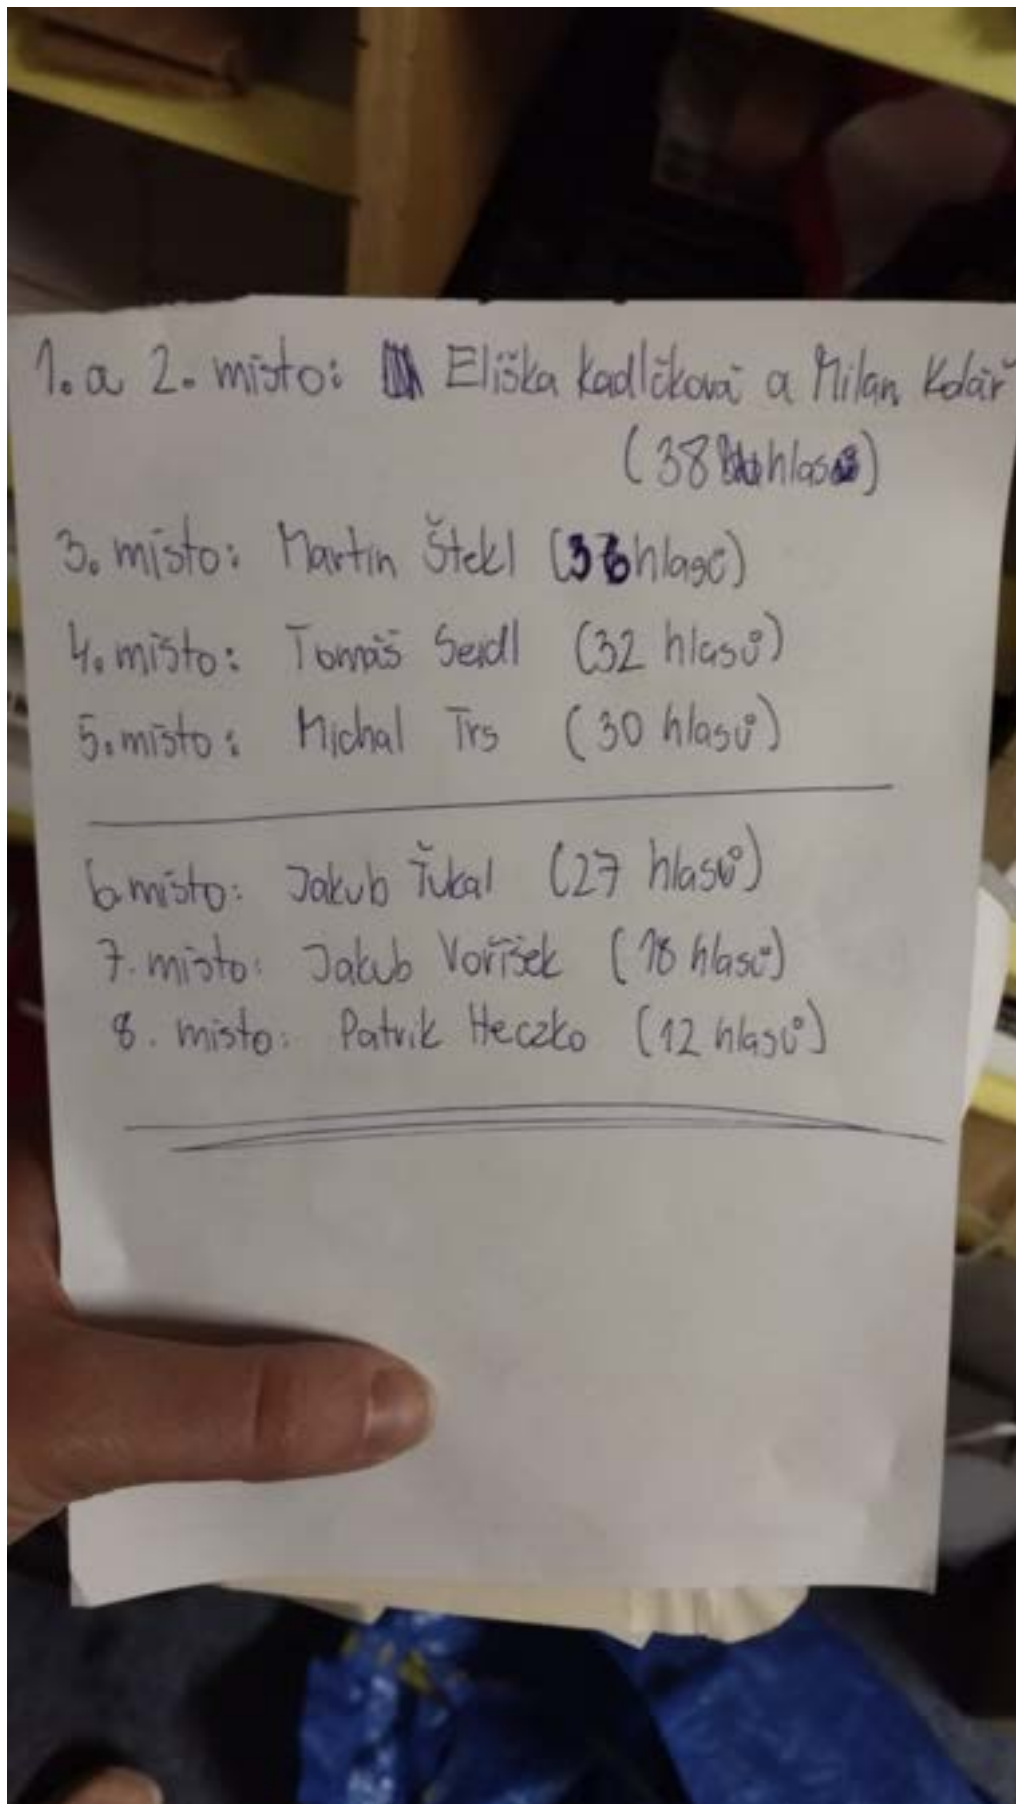 1. a 2. místo: Eliška Kadlčková a Milan Kolář
(38 hlasů)
3. místo: Martin Štekl (36 hlasů)
4. místo: Tomáš Seidl (32 hlasů)
5. místo: Michal Trs (30 hlasů)
6. místo: Jakub Ťukal (27 hlasů)
7. místo: Jakub Voříšek (18 hlasů)
8. místo: Patrik Heczko (12 hlasů)